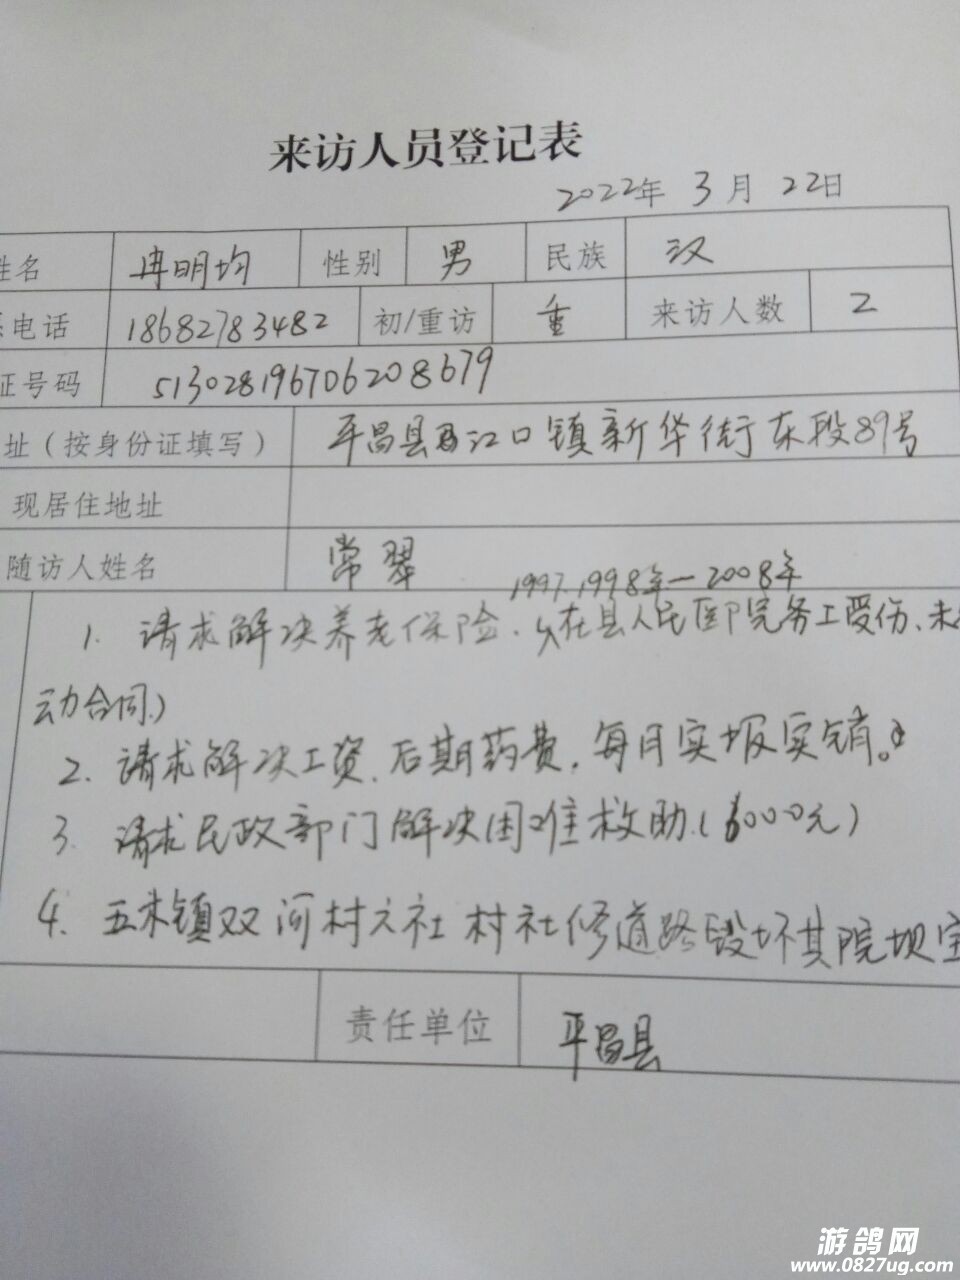 来访人员登记表
2022年 3月 22日
姓名 冉明均 性别 男 民族 汉
系电话 18682783482 初/重访 重 来访人数 2
证号码 513028196706208679
址(按身份证填写) 平昌县江口镇新华街东段89号
现居住地址
随访人姓名 常翠
1997.1998年—2008年
1. 请求解决养老保险.在县人民医院务工受伤、未
动合同.)
2. 请求解决工资.后期药费,每月实报实销。
3. 请求民政部门解决困难救助.(6000元)
4. 五木镇双河村六社村社修道路毁坏其院坝
责任单位 平昌县
游鸽网
www.0827ug.com